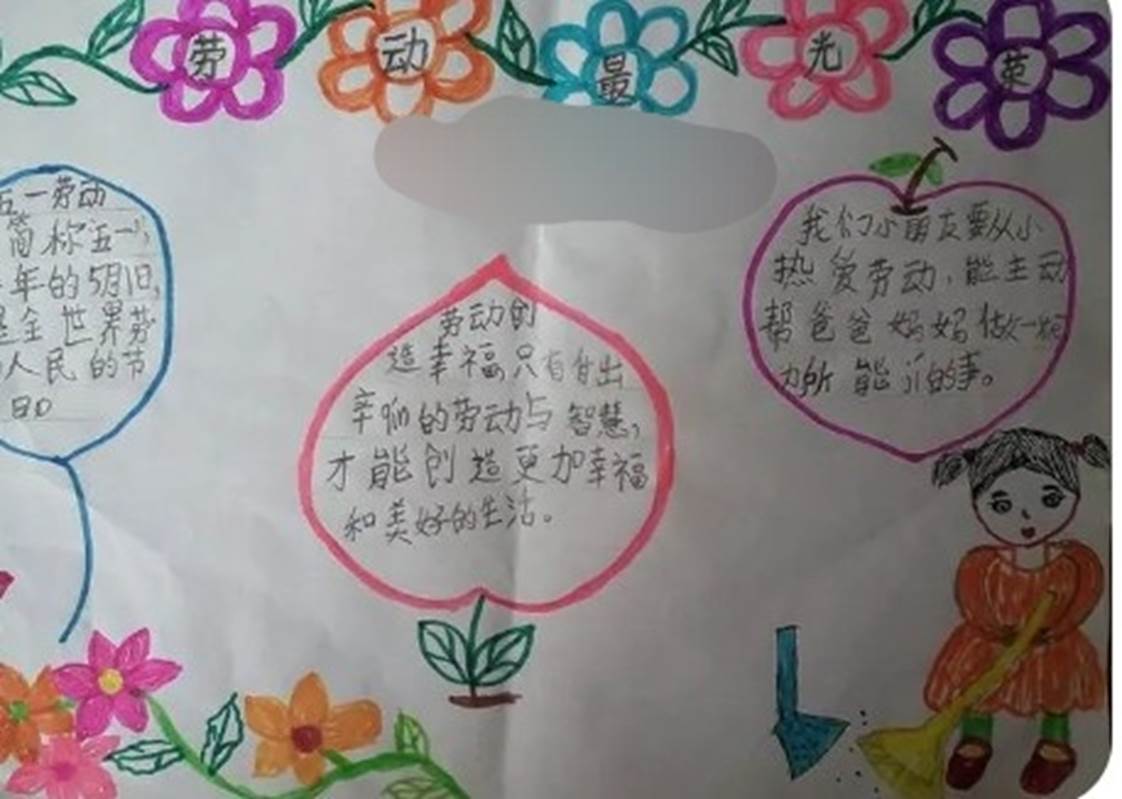 劳动最光荣
五一劳动
简称五一,
年的5月1日,
是全世界劳
人民的节
日。
劳动创
造幸福,只有付出
辛勤的劳动与智慧,
才能创造更加幸福
和美好的生活。
我们小朋友要从小
热爱劳动,能主动
帮爸爸妈妈做一些
力所能及的事。